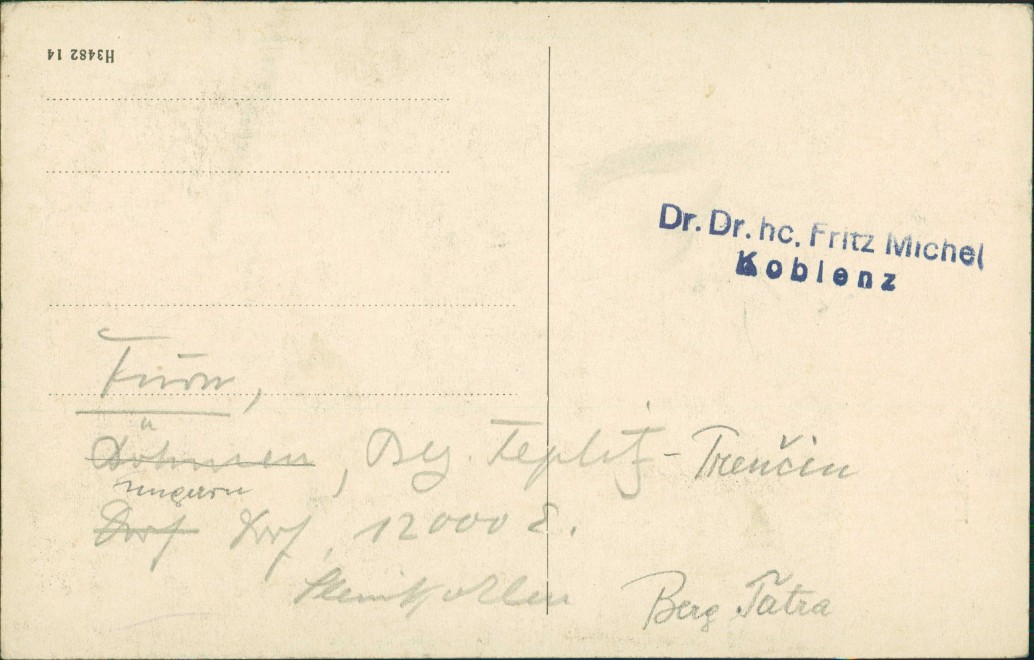 H3482 14
Dr. Dr. hc. Fritz Michel
Koblenz
Turn,
Böhmen, Bez. Teplitz - Trenčin
ungarn
Dorf Dorf, 12000 E.
Steinkohlen Berg Tatra